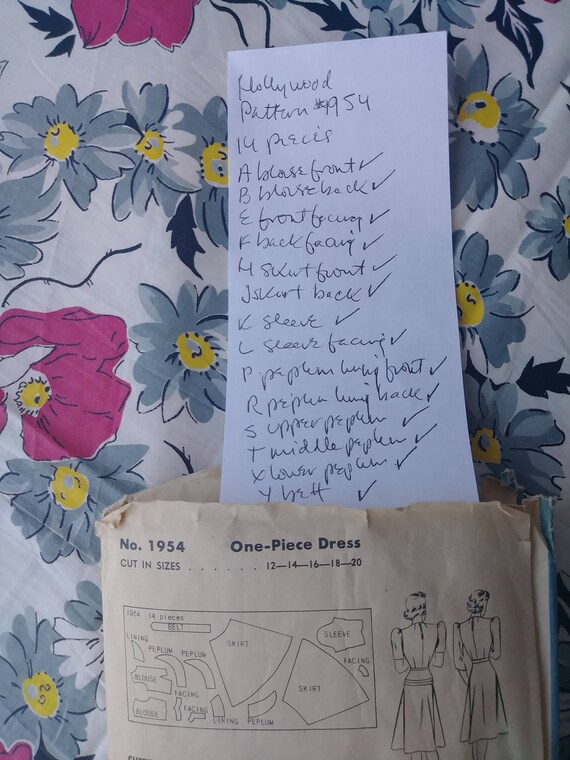 Hollywood
Pattern #1954
14 pieces
A blouse front ✓
B blouse back ✓
E front facing ✓
F back facing ✓
H skirt front ✓
J skirt back ✓
K sleeve ✓
L sleeve facing ✓
P peplum lining front ✓
R peplum lining back ✓
S upper peplum ✓
T middle peplum ✓
X lower peplum ✓
Y belt ✓
No. 1954 One-Piece Dress
CUT IN SIZES . . . . . . 12—14—16—18—20
1954 14 pieces
BELT
LINING
PEPLUM PEPLUM
SKIRT
SLEEVE
BLOUSE
FACING
FACING
SKIRT
FACING
BLOUSE
LINING
PEPLUM